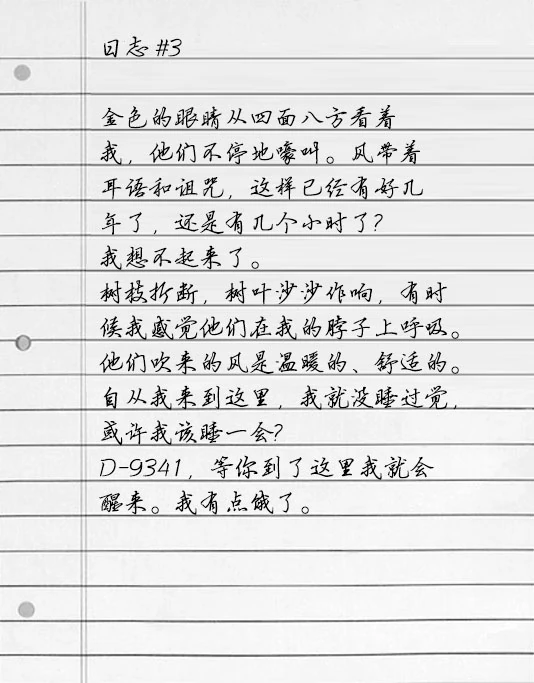 日志 #3
金色的眼睛从四面八方看着
我，他们不停地嚎叫。风带着
耳语和诅咒，这样已经有好几
年了，还是有几个小时了？
我想不起来了。
树枝折断，树叶沙沙作响，有时
候我感觉他们在我的脖子上呼吸。
他们吹来的风是温暖的、舒适的。
自从我来到这里，我就没睡过觉，
或许我该睡一会？
D-9341，等你到了这里我就会
醒来。我有点饿了。